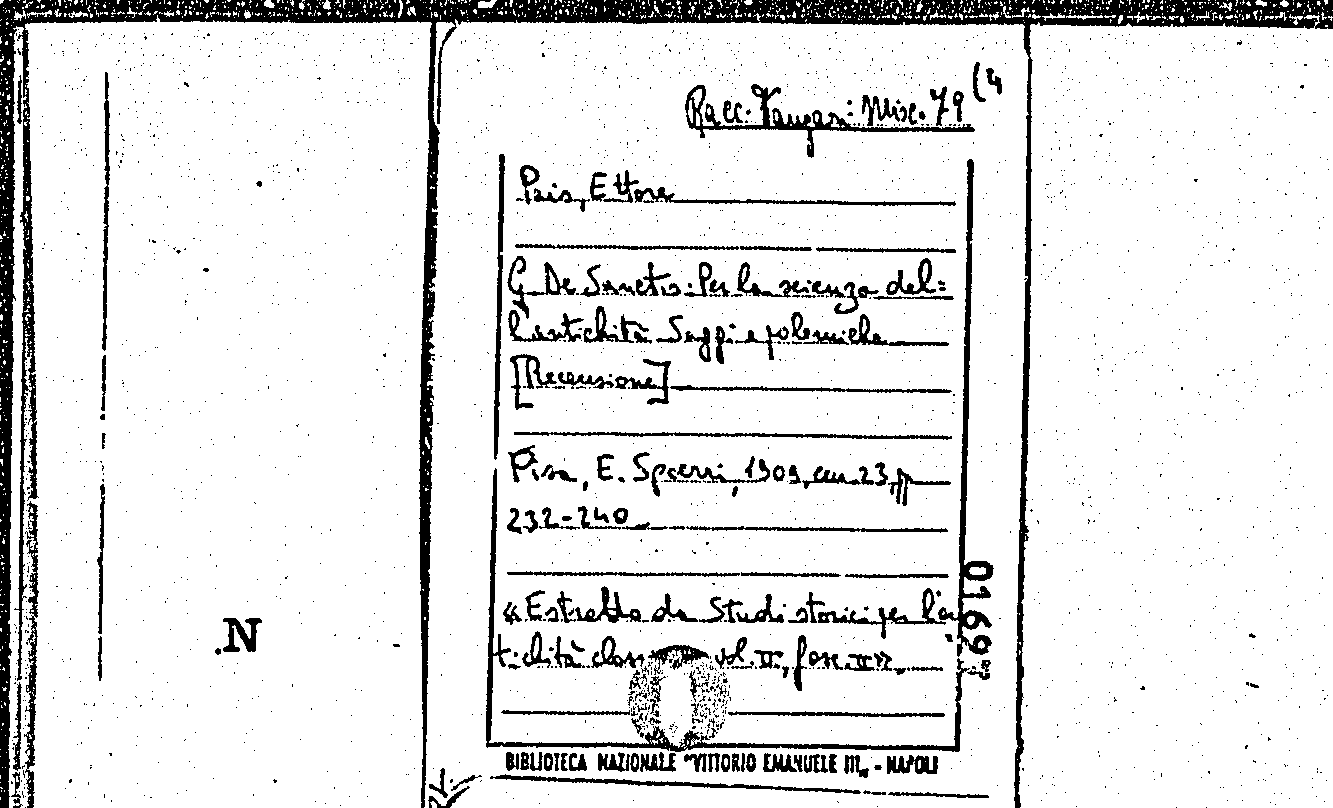 Racc. Vargas: Misc. 79 (4
Pais, Ettore
G. De Sanctis: Per la scienza del=
l'antichità Saggi e polemiche
[Recensione]
Pisa, E. Spoerri, 1909, cm. 23, pp
232-240
« Estratto da Studi storici per l'an
tichità class vol. II, fasc. II».
0169
N
BIBLIOTECA NAZIONALE "VITTORIO EMANUELE III„ - NAPOLI